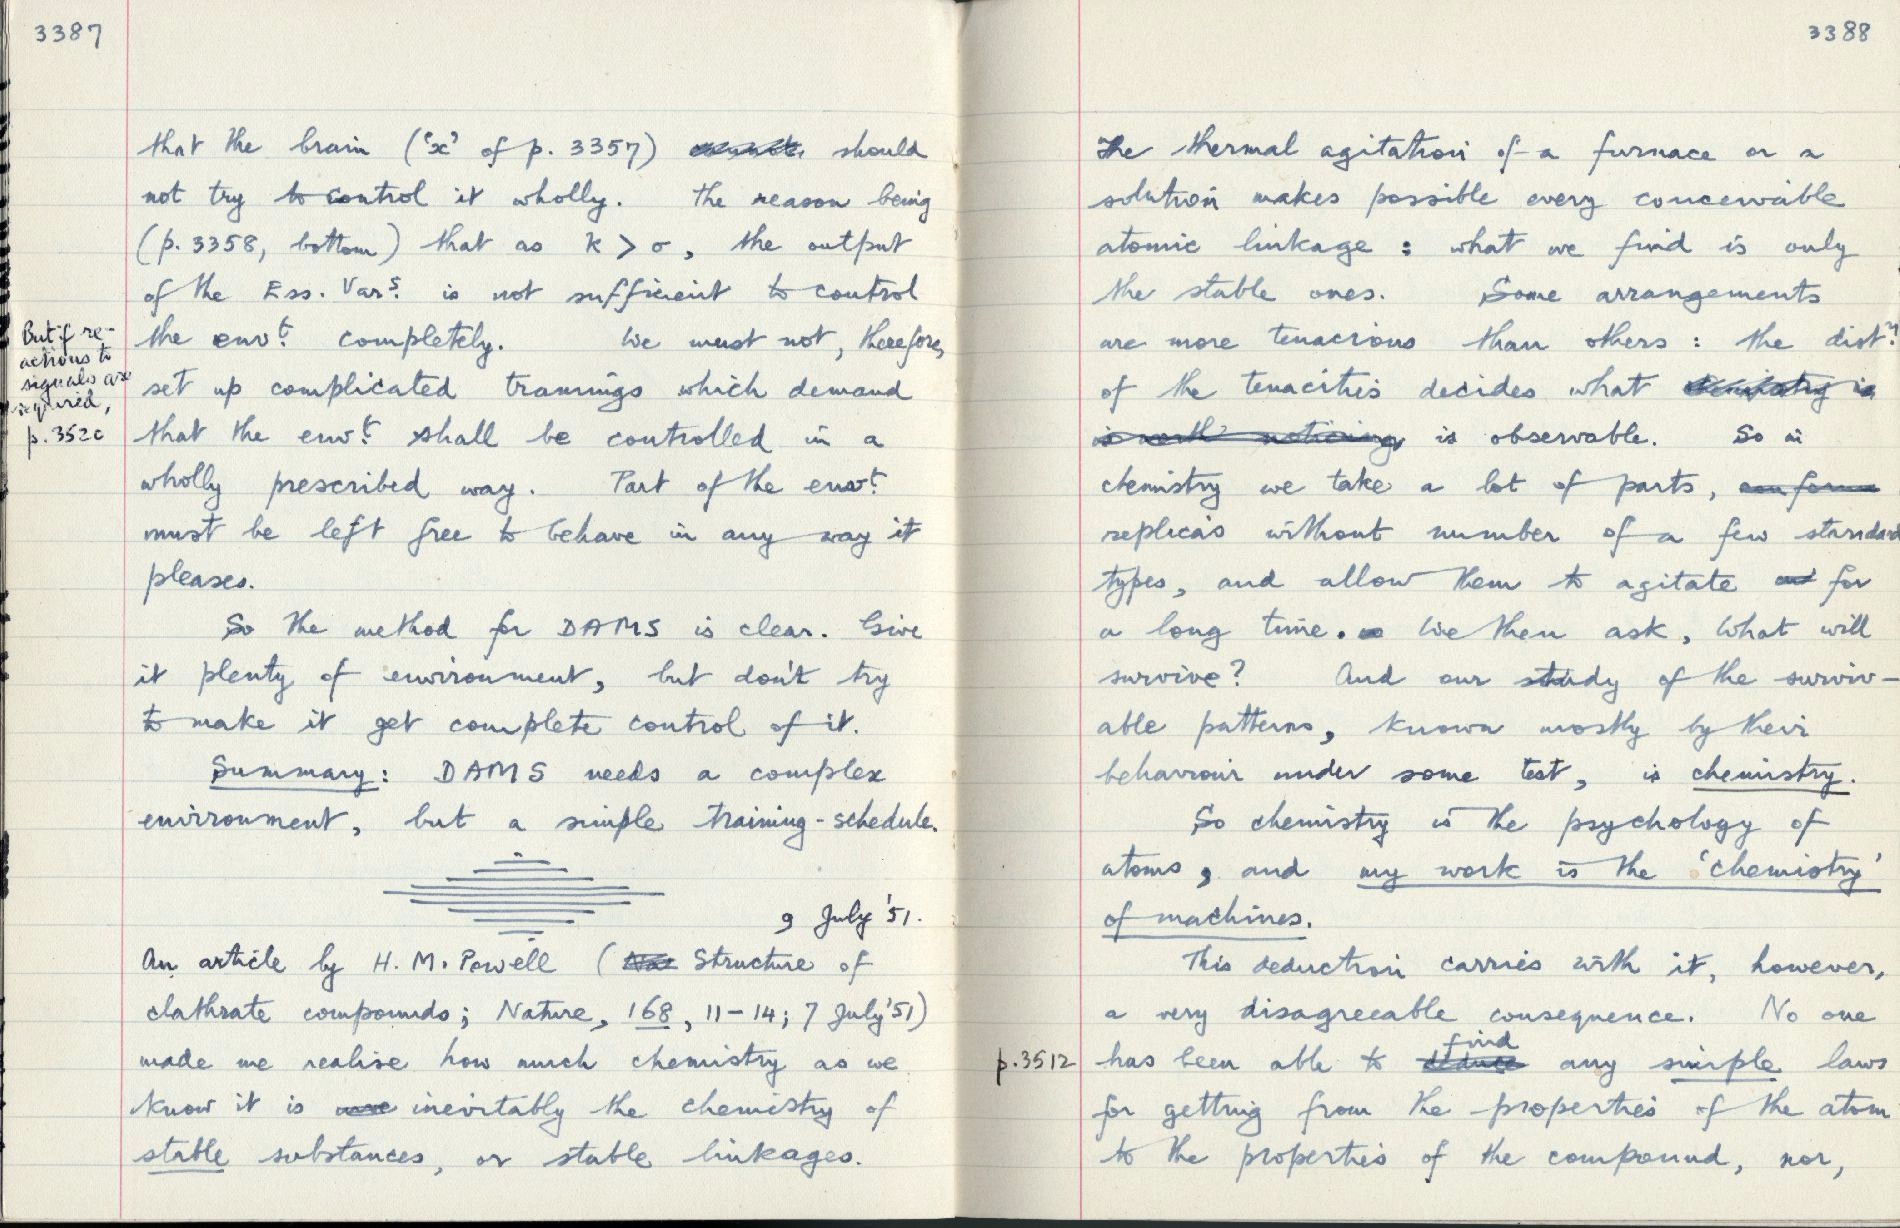 3387
that the brain ('x' of p. 3357) should
not try to control it wholly. The reason being
(p. 3358, bottom) that as k > σ, the output
of the Ess. Varˢ. is not sufficient to control
the envᵗ. completely. We must not, therefore,
set up complicated trainings which demand
that the envᵗ. shall be controlled in a
wholly prescribed way. Part of the envᵗ.
must be left free to behave in any way it
pleases.
But if re-
actions to
signals are
required,
p. 3520
So the method for DAMS is clear. Give
it plenty of environment, but don't try
to make it get complete control of it.
Summary: DAMS needs a complex
environment, but a simple training-schedule.
9 July '51.
An article by H. M. Powell (Structure of
clathrate compounds; Nature, 168, 11-14; 7 July '51)
made me realise how much chemistry as we
know it is inevitably the chemistry of
stable substances, or stable linkages.
3388
The thermal agitation of a furnace or a
solution makes possible every conceivable
atomic linkage: what we find is only
the stable ones. Some arrangements
are more tenacious than others: the distⁿ.
of the tenacities decides what is
is worth noticing is observable. So in
chemistry we take a lot of parts,
replicas without number of a few standard
types, and allow them to agitate for
a long time. We then ask, What will
survive? And our study of the surviv-
able patterns, known mostly by their
behaviour under some test, is chemistry.
So chemistry is the psychology of
atoms, and my work is the 'chemistry'
of machines.
This deduction carries with it, however,
a very disagreeable consequence. No one
p. 3512
has been able to deduce find any simple laws
for getting from the properties of the atom
to the properties of the compound, nor,